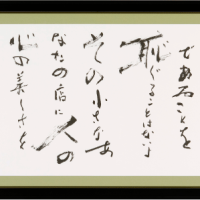 であることを
恥ぢることはないよ
その小さなあ
なたの店に人の
心の美しさを